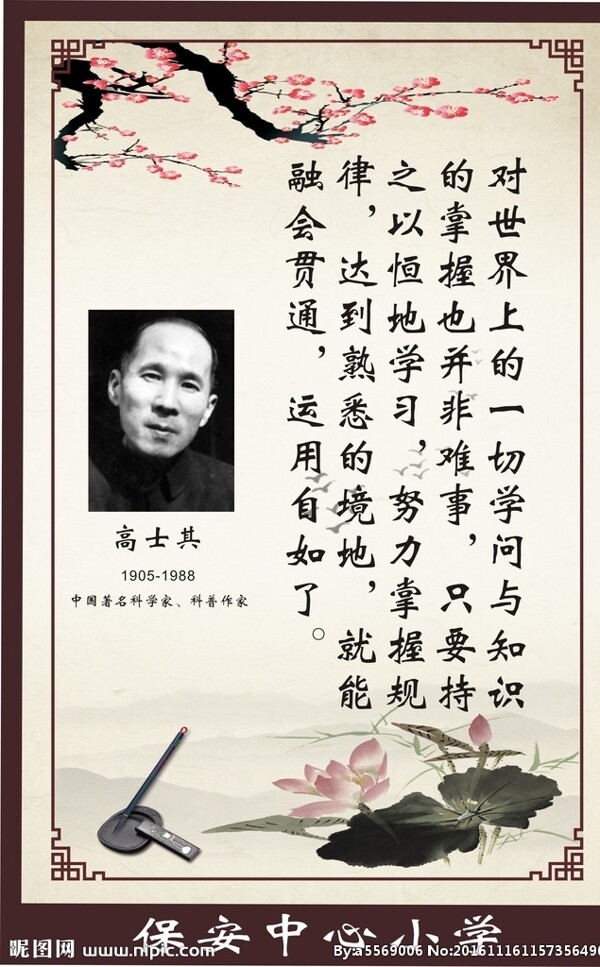 对世界上的一切学问与知识
的掌握也并非难事，只要持
之以恒地学习，努力掌握规
律，达到熟悉的境地，就能
融会贯通，运用自如了。
高士其
1905-1988
中国著名科学家、科普作家
保安中心小学
昵图网 www.nipic.com By:a5569006 No:20161116115735649